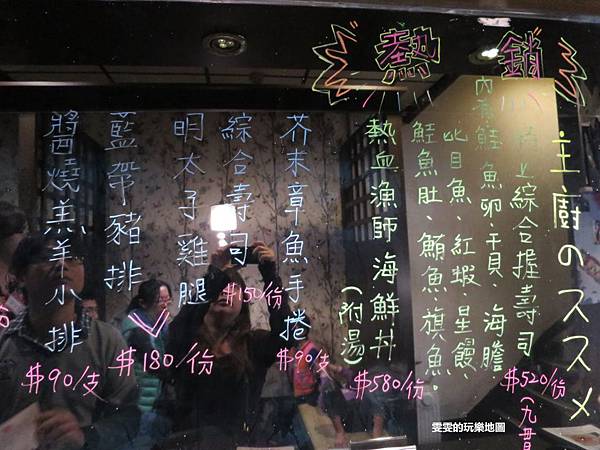 熱銷
主廚のススメ
特上綜合握壽司
$520/份
內有鮭魚卵、干貝、海膽、
比目魚、紅蝦、星鰻、
鮭魚肚、鮪魚、旗魚。
熱血漁師海鮮丼
(附湯)
$580/份
芥末章魚手捲
$90/份
綜合壽司
$150/份
明太子雞腿
藍帶豬排
$180/份
醬燒羔羊小排
$90/支
雯雯的玩樂地圖